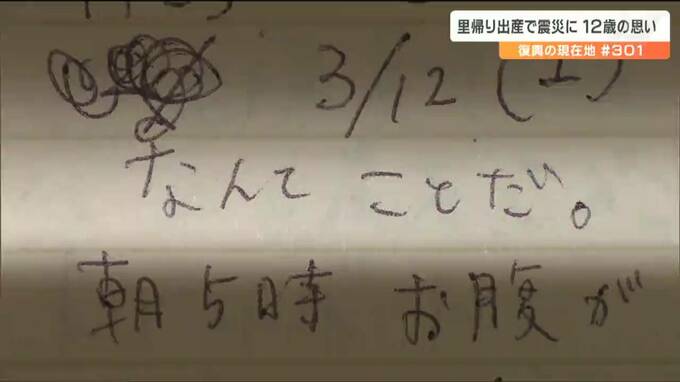 里帰り出産で震災に 12歳の思い
復興の現在地 #301
3/12(土)
なんてことだ。
朝5時 お腹が